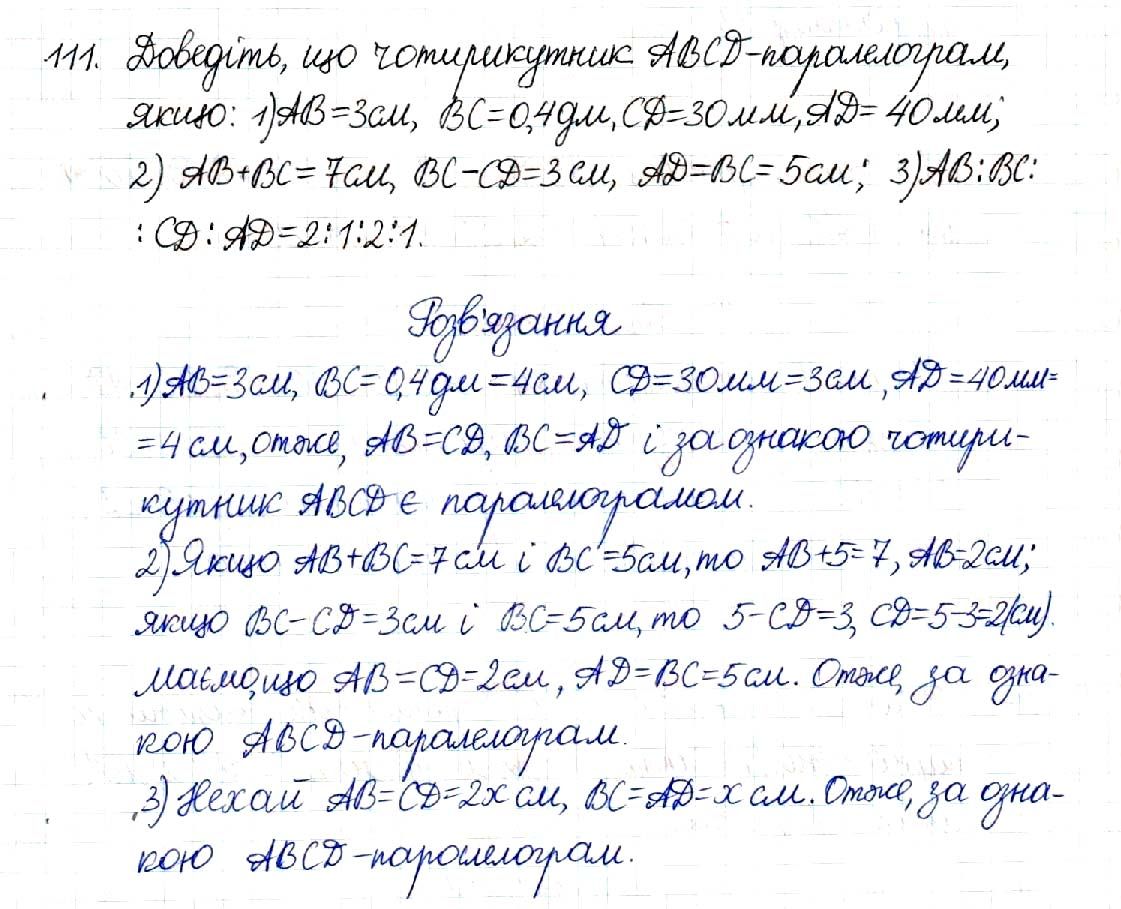 111. Доведіть, що чотирикутник ABCD-паралелограм,
якщо: 1) AB=3см, BC=0,4дм, CD=30мм, AD=40мм;
2) AB+BC=7см, BC-CD=3см, AD=BC=5см; 3) AB:BC:
:CD:AD=2:1:2:1.
Розв'язання
1) AB=3см, BC=0,4дм=4см, CD=30мм=3см, AD=40мм=
=4см, отже, AB=CD, BC=AD і за ознакою чотири-
кутник ABCD є паралелограмом.
2) Якщо AB+BC=7см і BC=5см, то AB+5=7, AB=2см;
якщо BC-CD=3см і BC=5см, то 5-CD=3, CD=5-3=2(см).
Маємо, що AB=CD=2см, AD=BC=5см. Отже, за озна-
кою ABCD-паралелограм.
3) Нехай AB=CD=2x см, BC=AD=x см. Отже, за озна-
кою ABCD-паралелограм.